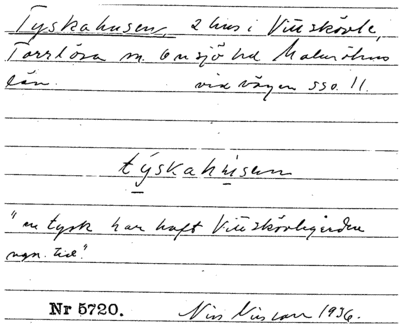 Tyskahusen, 2 hus i Vittskövle,
Torrlösa sn. Onsjö hd Malmöhus
län. vid vägen sso. 11.
týskahusen
"en tysk har haft Vittskövlegården
ngn. tid."
Nr 5720. Nils Nilsson 1936.